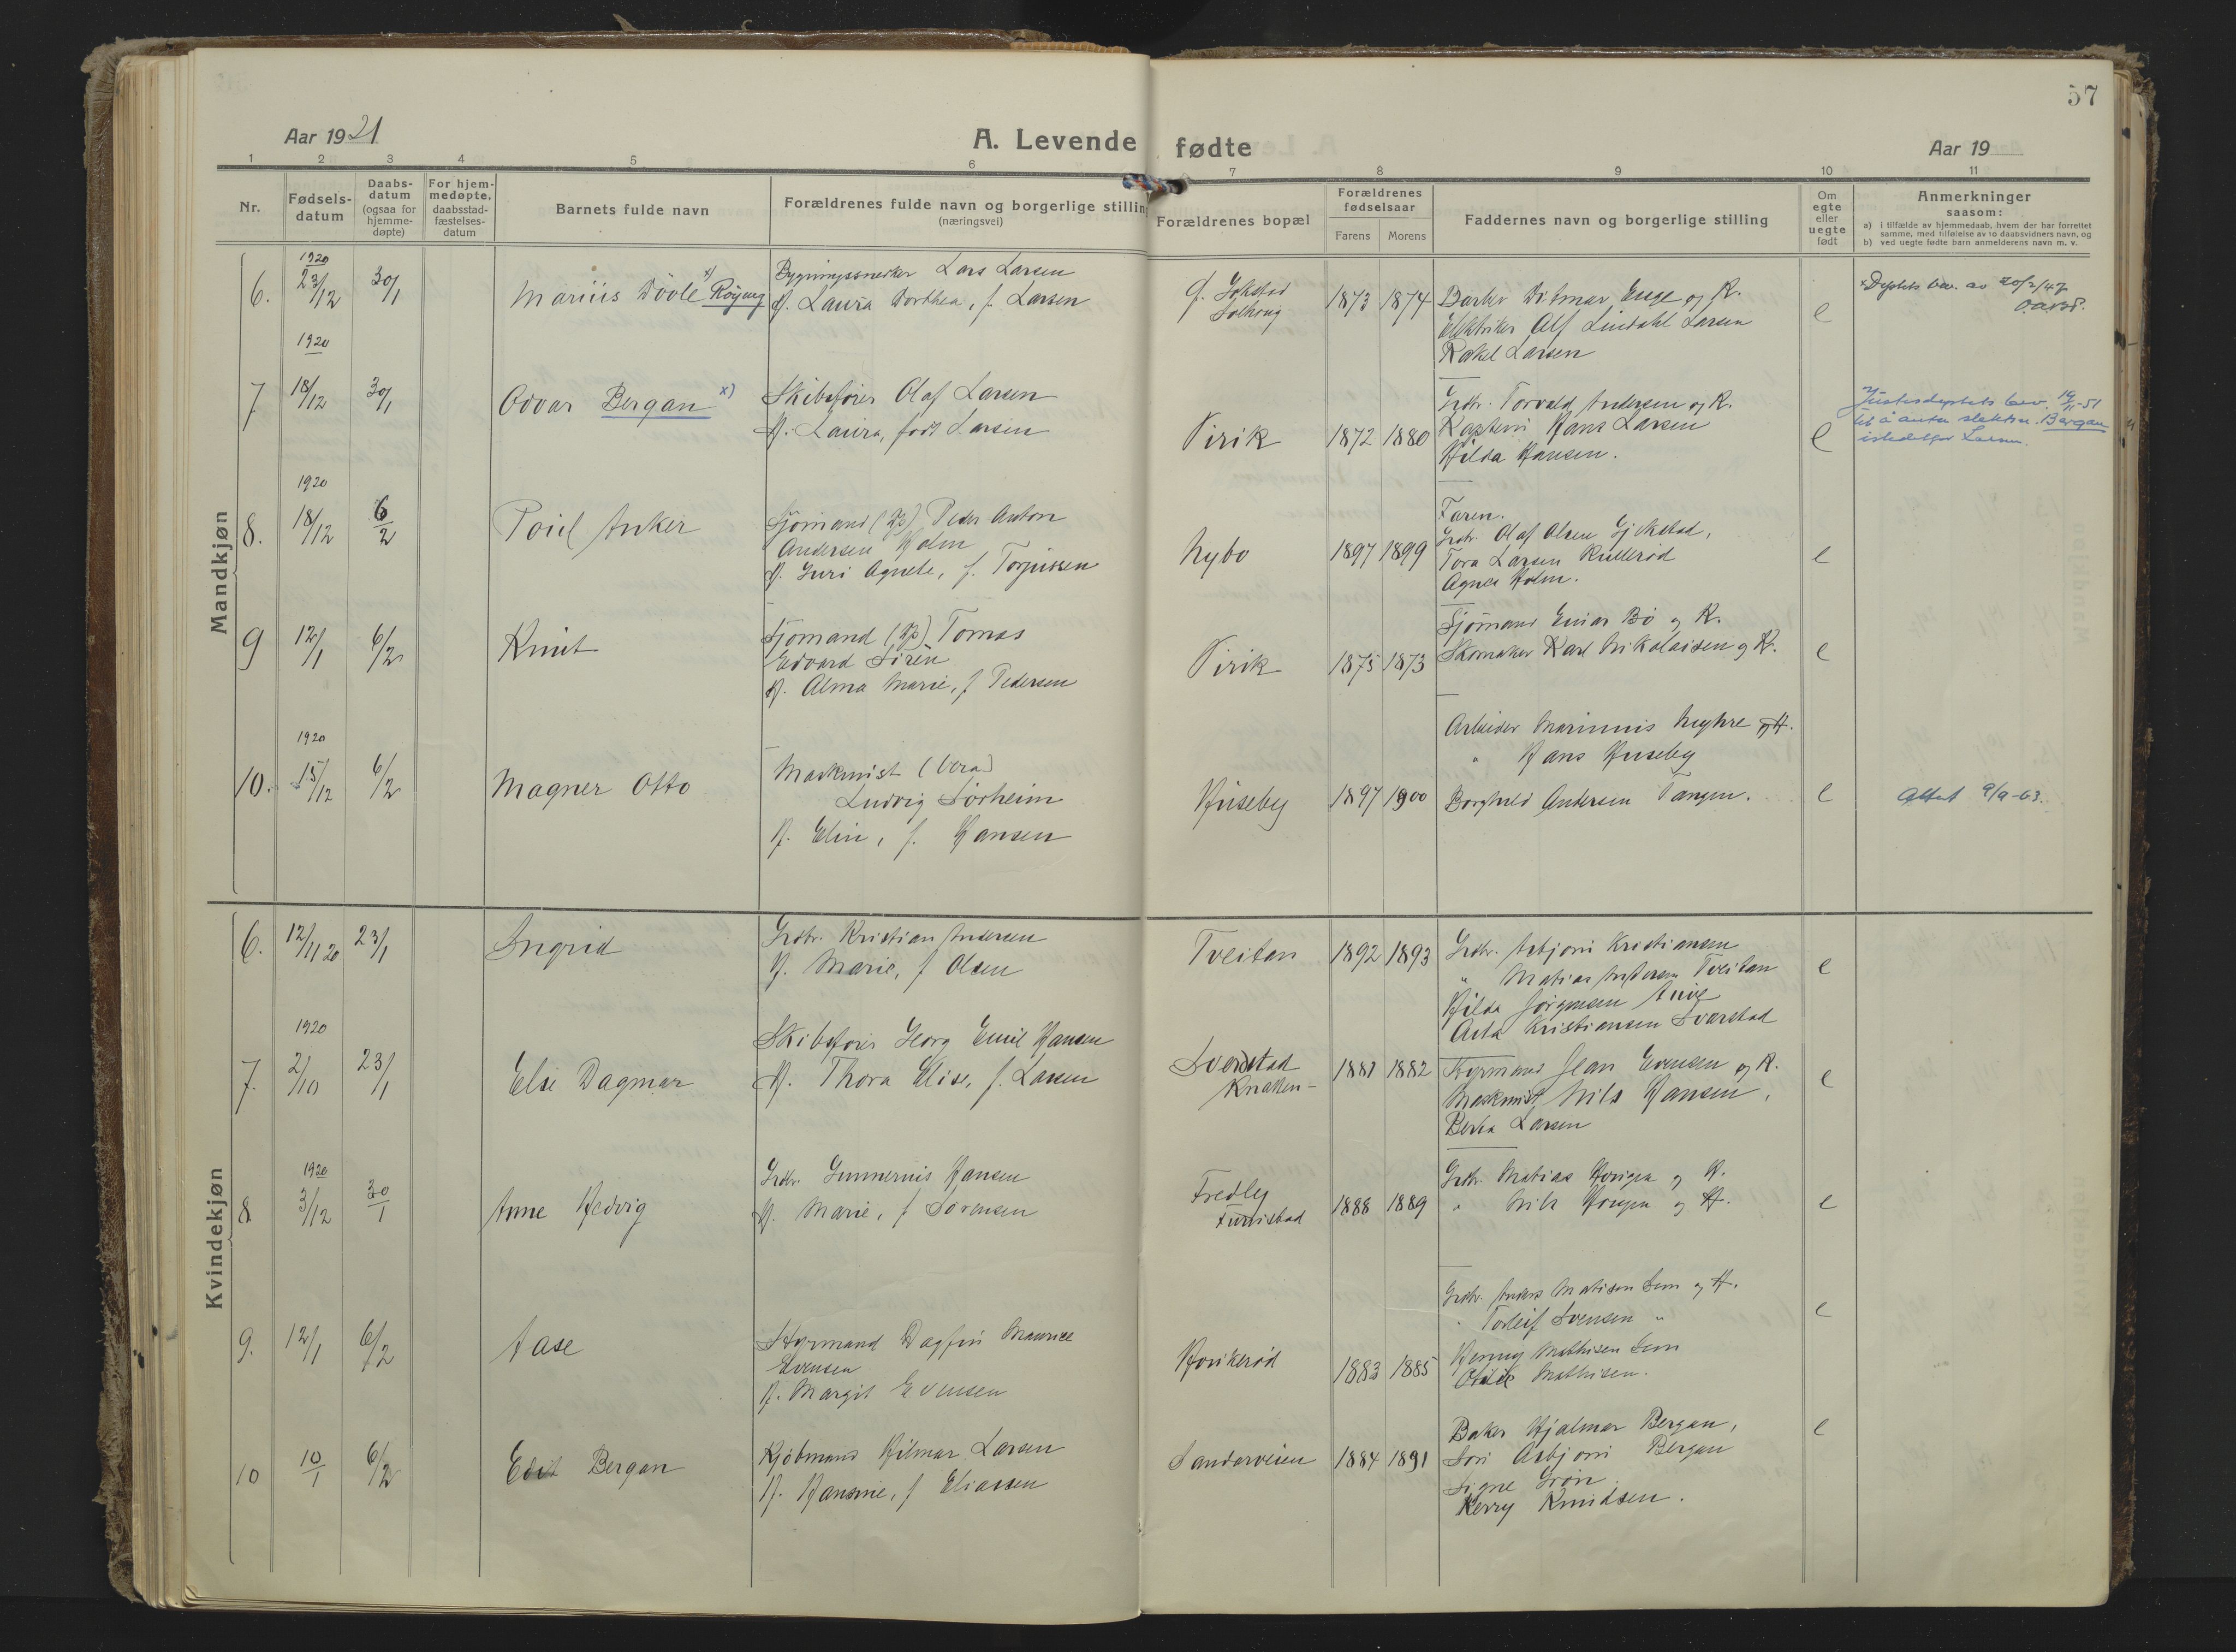 57
Aar 1921
A. Levende fødte
Aar 19
1 2 3 4 5 6 7 8 9 10 11
Nr.
Fødsels-
datum
Daabs-
datum
(ogsaa for
hjemme-
døpte)
For hjem-
medøpte,
daabsstad-
fæstelses-
datum
Barnets fulde navn
Forældrenes fulde navn og borgerlige stilling
(næringsvei)
Forældrenes bopæl
Forældrenes
fødselsaar
Farens Morens
Faddernes navn og borgerlige stilling
Om
egte
eller
uegte
født
Anmerkninger
saasom:
a) i tilfælde av hjemmedaab, hvem der har forrettet
samme, med tilføielse av to daabsvidners navn, og
b) ved uegte fødte barn anmelderens navn m. v.
Mandkjøn
1920
6. 23/12 30/1 Marius x)
Bygningssnekker Lars Larsen
H. Laura Dorthea, f. Larsen
1873 1874
Barber Ditmar Enge og K.
Elektriker Alf Lindahl Larsen
Rakel Larsen
e
20/2/47
1920
7 18/12 30/1 Odvar Bergan x)
Skibsfører Olaf Larsen
H. Laura, født Larsen
Virik
1872 1880
Grdbr. Torvald Andersen og K.
Kaptein Hans Larsen
Hilda Hansen.
e
Justisdeptets bev. 19/11-51
til å anta slektsn. Bergan
istedetfor Larsen.
1920
8. 18/12 6/2 Poul Anker
Sjømand Peder Anton
Andersen Holm
H. Guri Agnete, f. Torjussen
Nybo
1897 1899
Faren.
Grdbr. Olaf Olsen Gjekstad,
Tora Larsen Kullerød
Agnes Holm.
e
9 12/1 6/2 Knut
Sjømand Tomas
Edvard Sirèn
H. Alma Marie, f Pedersen
Virik
1875 1873
Sjømand Einar Bø og K.
Skomaker Karl Nikolaisen og K.
e
1920
10. 15/12 6/2 Magner Otto
Maskinist
Ludvig Sørheim
H. Elin, f. Hansen
Huseby
1897 1900
Arbeider Marinius Myhre og H.
" Hans Huseby
Borghild Andersen Tangen.
e
Attest 9/9-63.
Kvindekjøn
6. 12/11 20 23/1 Ingrid
Grdbr. Kristian Andersen
H. Marie, f Olsen
Tveitan
1892 1893
Grdbr. Asbjørn Kristiansen
" Matias Andersen Tveitan
Hilda Jørgensen
Asta Kristiansen Sværstad
e
1920
7. 2/10 23/1 Else Dagmar
Skibsfører Georg Emil Hansen
H. Thora Elise, f. Larsen
1881 1882
Styrmand Jean Evensen og K.
Maskinist Nils Hansen,
Berta Larsen
e
1920
8 3/12 30/1 Anne Hedvig
Grdbr. Gunnerius Hansen
H. Marie, f Sørensen
Fredly
1888 1889
Grdbr. Matias og H.
" Nils og H.
e
9. 12/1 6/2 Aase
Styrmand Dagfin Maurice
Evensen
H. Margit Evensen
1883 1885
Grdbr. Anders Matisen Sem og H.
" Torleif Svensen "
Henny Mathisen Sem
Mathisen.
e
10 10/1 6/2 Edit Bergan
Kjøbmand Hilmar Larsen
H. Hansine, f Eliassen
Sandarveien
1884 1891
Baker Hjalmar Bergan,
Asbjørn Bergan
Signe Grøn.
Kerry Knudsen.
e